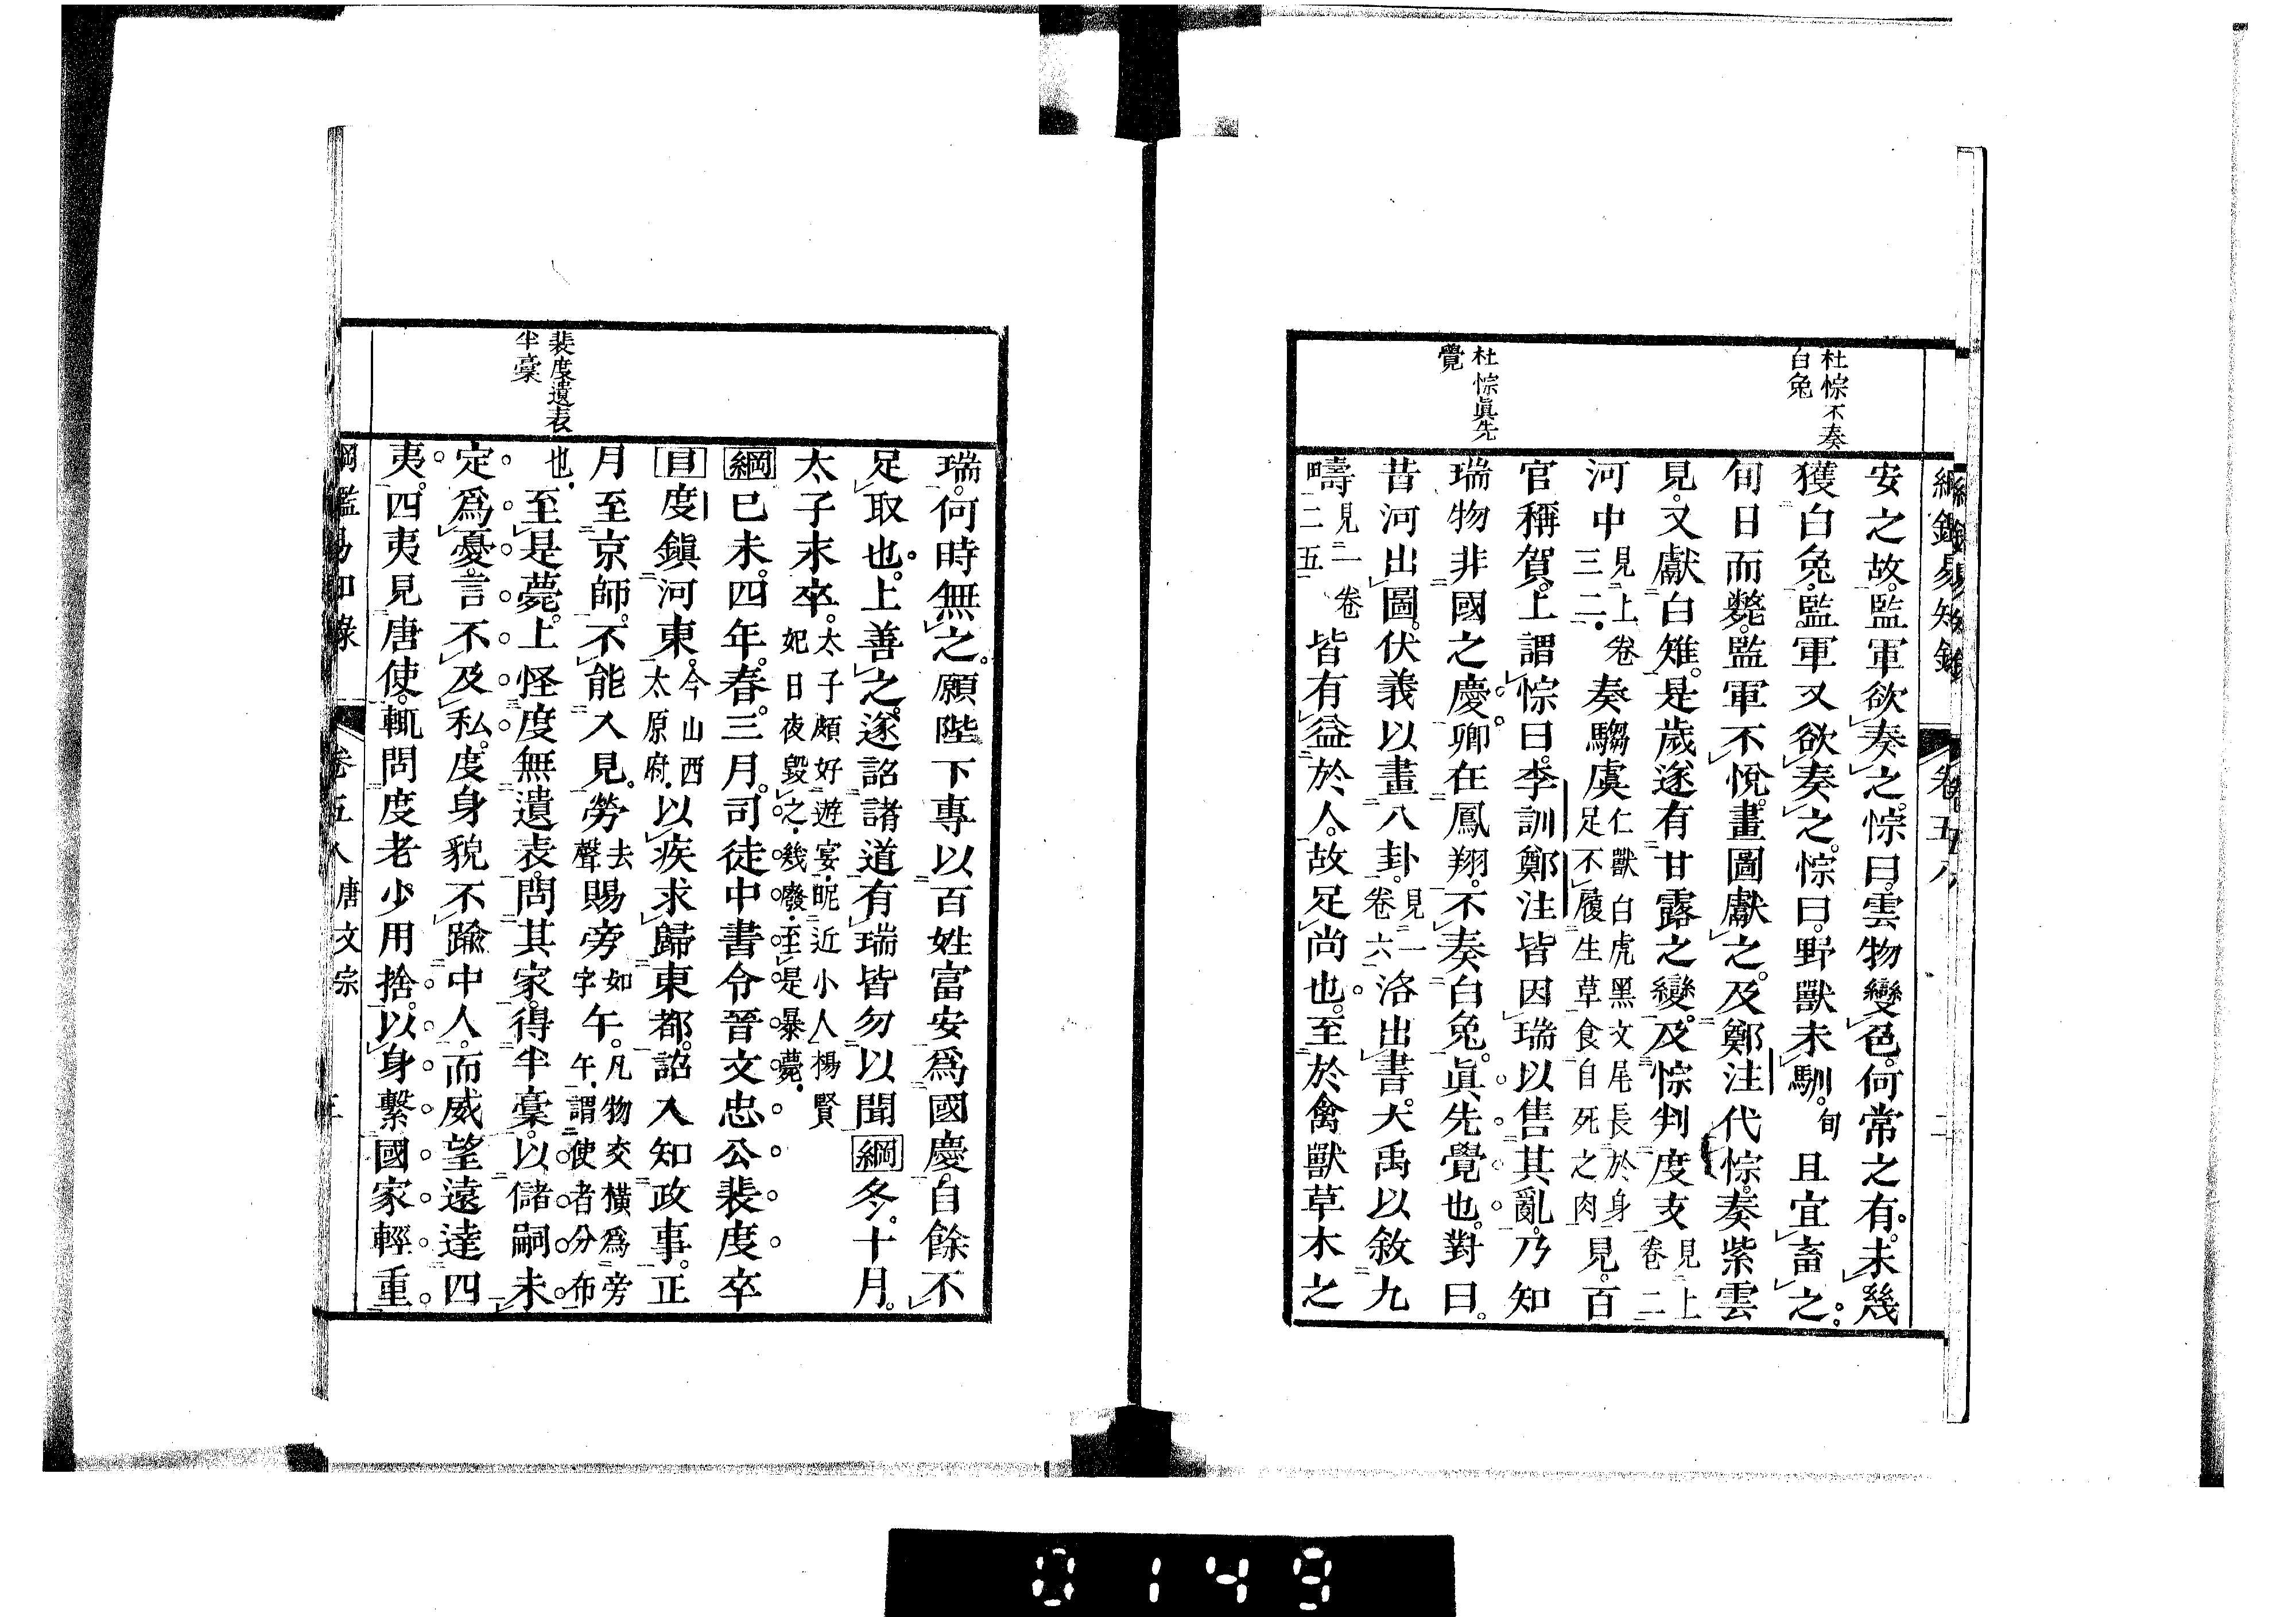 綱鑑易知錄　卷五八　二
杜悰不奏
白兔
杜悰眞先
覺
安之故。監軍欲奏之。悰曰。雲物變色。何常之有。未幾
獲白兔。監軍又欲奏之。悰曰。野獸未馴。旬且宜畜之。
旬日而斃。監軍不悅。畫圖獻之。及鄭注代悰。奏紫雲
見。又獻白雉。是歲遂有甘露之變。及悰判度支見上卷二
河中見上卷三二。奏騶虞仁獸白虎黑文尾長於身足不履生草食自死之肉見。百
官稱賀。上謂悰曰。李訓鄭注皆因瑞以售其亂。乃知
瑞物非國之慶。卿在鳳翔。不奏白兔。眞先覺也。對曰。
昔河出圖。伏義以畫八卦。見一卷六洛出書。大禹以敘九
疇見一卷二五皆有益於人。故足尚也。至於禽獸草木之
裴度遺表
半稾
瑞。何時無之。願陛下專以百姓富安爲國慶。自餘不
足取也。上善之。遂詔諸道有瑞皆勿以聞綱冬。十月。
太子永卒。太子頗好遊宴。昵近小人楊賢妃日夜毀之。幾廢。至是暴薨。
綱己未。四年。春。三月。司徒中書令晉文忠公裴度卒
目度鎭河東。今山西太原府。以疾求歸東都。詔入知政事。正
月至京師。不能入見。勞去聲賜旁如字午。凡物交橫爲旁午。謂使者分布
也。至是薨。上怪度無遺表。問其家。得半稾。以儲嗣未
定爲憂。言不及私。度身貌不踰中人。而威望遠達四
夷。四夷見唐使。輒問度老少用捨。以身繫國家輕重
綱鑑易知錄　卷五八　唐文宗　三
0149